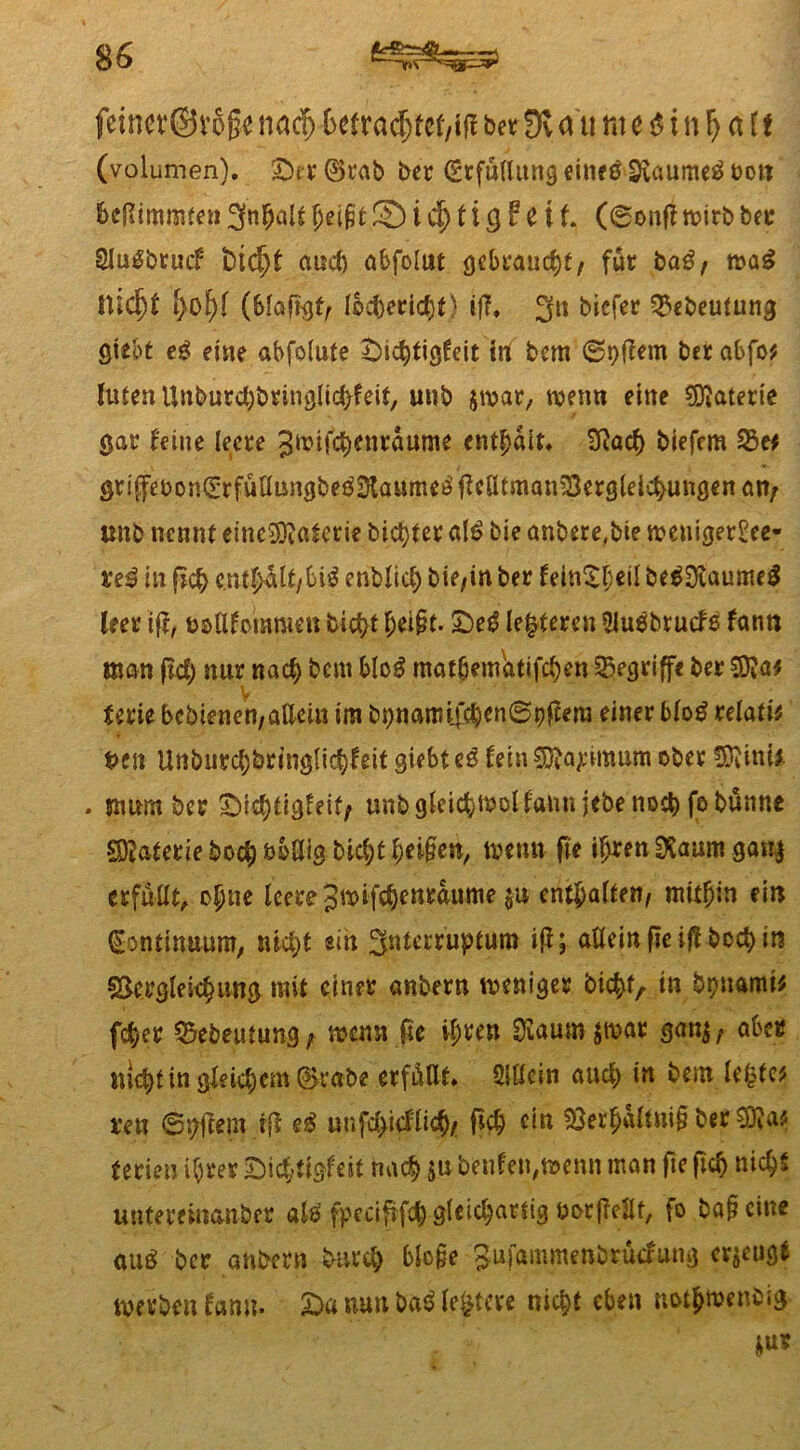 86
seiner Größe nach betrachtet, ist der Raumesinhalt
(volumen). Der Grad der Erfüllung eines Raumes von
bestimmten Inhalt heißt Dichtigkeit. (Sonst wird der
Ausdruck dicht auch absolut gebraucht, für das, was
nicht hohl (blasigt, löchericht) ist. In dieser Bedeutung
giebt es eine absolute Dichtigkeit in dem System der abso-
luten Undurchdringlichkeit, und zwar, wenn eine Materie
gar keine leere Zwischenräume enthält. Nach diesem Be-
griffe von Erfüllung des Raumes stellt man Vergleichungen an,
und nennt eine Materie dichter als die andere, die weniger Lee-
res in sich enthält, bis endlich die, in der kein Theil des Raumes
leer ist, vollkommen dicht heißt. Des letzteren Ausdrucks kann
man sich nur nach dem blos mathematischen Begriffe der Ma-
terie bedienen, allein im dynamischen System einer blos relati-
ven Undurchdringlichkeit giebt es kein Maximum oder Mini-
mum der Dichtigkeit, und gleichwol kann jede noch so dünne
Materie doch völlig dicht heißen, wenn sie ihren Raum ganz
erfüllt, ohne leere Zwischenräume zu enthalten, mithin ein
Continuum, nicht ein Interruptum ist; allein sie ist doch in
Vergleichung mit einer andern weniger dicht, in dynami-
scher Bedeutung, wenn sie ihren Raum zwar ganz, aber
nicht in gleichem Grade erfüllt. Allein auch in dem letzte-
ren System ist es unschicklich, sich ein Verhältniß der Ma-
terien ihrer Dichtigkeit nach zu denken, wenn man sie sich nicht
untereinander als specifisch gleichartig vorstellt, so daß eine
aus der andern durch bloße Zusammendrückung erzeugt
werden kann. Da nun das letztere nicht eben nothwendig
zur